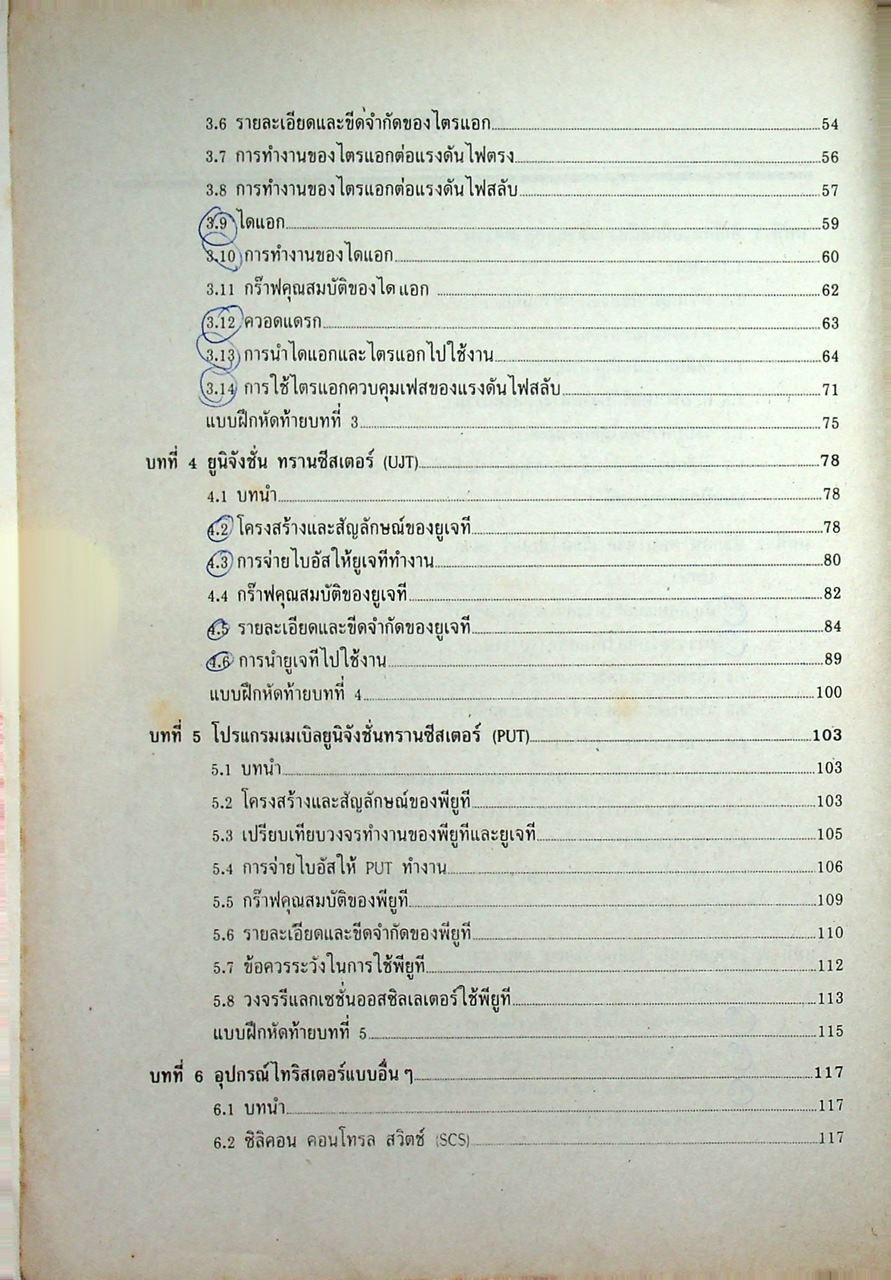 3.6 รายละเอียดและขีดจำกัดของไตรแอก 54
3.7 การทำงานของไตรแอกต่อแรงดันไฟตรง 56
3.8 การทำงานของไตรแอกต่อแรงดันไฟสลับ 57
3.9 ไดแอก 59
3.10 การทำงานของไดแอก 60
3.11 กร๊าฟคุณสมบัติของไดแอก 62
3.12 ควอดแดรก 63
3.13 การนำไดแอกและไตรแอกไปใช้งาน 64
3.14 การใช้ไตรแอกควบคุมเฟสของแรงดันไฟสลับ 71
แบบฝึกหัดท้ายบทที่ 3 75
บทที่ 4 ยูนิจังชั่น ทรานซีสเตอร์ (UJT) 78
4.1 บทนำ 78
4.2 โครงสร้างและสัญลักษณ์ของยูเจที 78
4.3 การจ่ายไบอัสให้ยูเจทีทำงาน 80
4.4 กร๊าฟคุณสมบัติของยูเจที 82
4.5 รายละเอียดและขีดจำกัดของยูเจที 84
4.6 การนำยูเจทีไปใช้งาน 89
แบบฝึกหัดท้ายบทที่ 4 100
บทที่ 5 โปรแกรมเมเบิลยูนิจังชั่นทรานซีสเตอร์ (PUT) 103
5.1 บทนำ 103
5.2 โครงสร้างและสัญลักษณ์ของพียูที 103
5.3 เปรียบเทียบวงจรทำงานของพียูทีและยูเจที 105
5.4 การจ่ายไบอัสให้ PUT ทำงาน 106
5.5 กร๊าฟคุณสมบัติของพียูที 109
5.6 รายละเอียดและขีดจำกัดของพียูที 110
5.7 ข้อควรระวังในการใช้พียูที 112
5.8 วงจรรีแลกเซชั่นออสซิลเลเตอร์ใช้พียูที 113
แบบฝึกหัดท้ายบทที่ 5 115
บทที่ 6 อุปกรณ์ไทริสเตอร์แบบอื่น ๆ 117
6.1 บทนำ 117
6.2 ซิลิคอน คอนโทรล สวิตช์ (SCS) 117